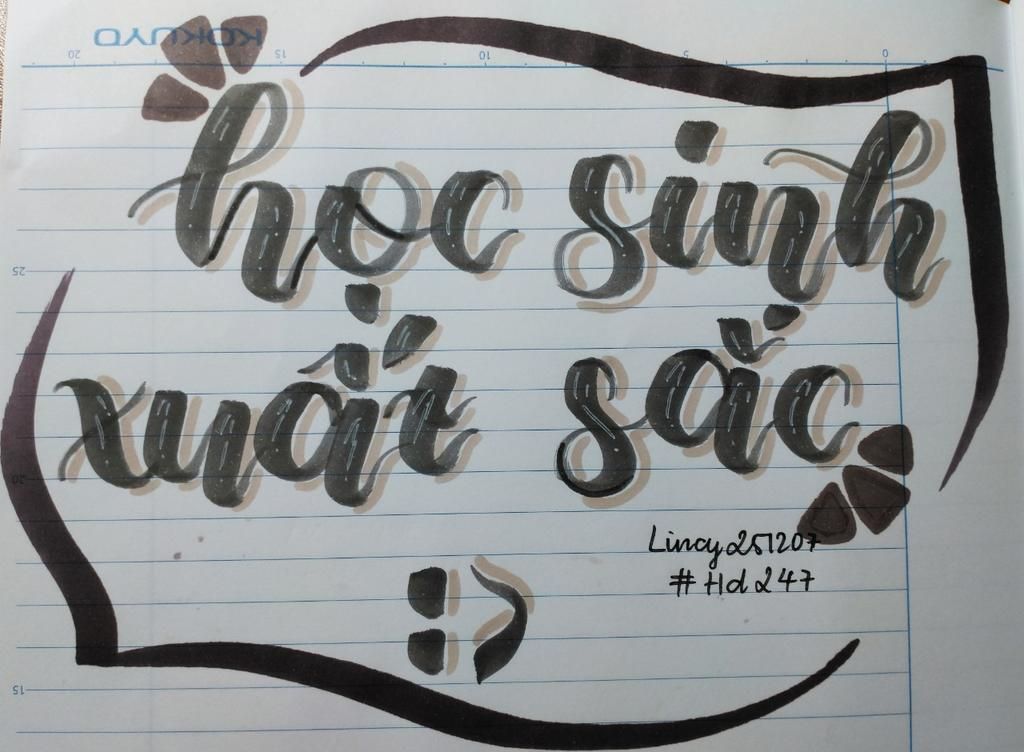 KOKUYO
20 15 10 5 0
học sinh
25
xuất sắc
20
Lincy251207
#Hd247
:)
15